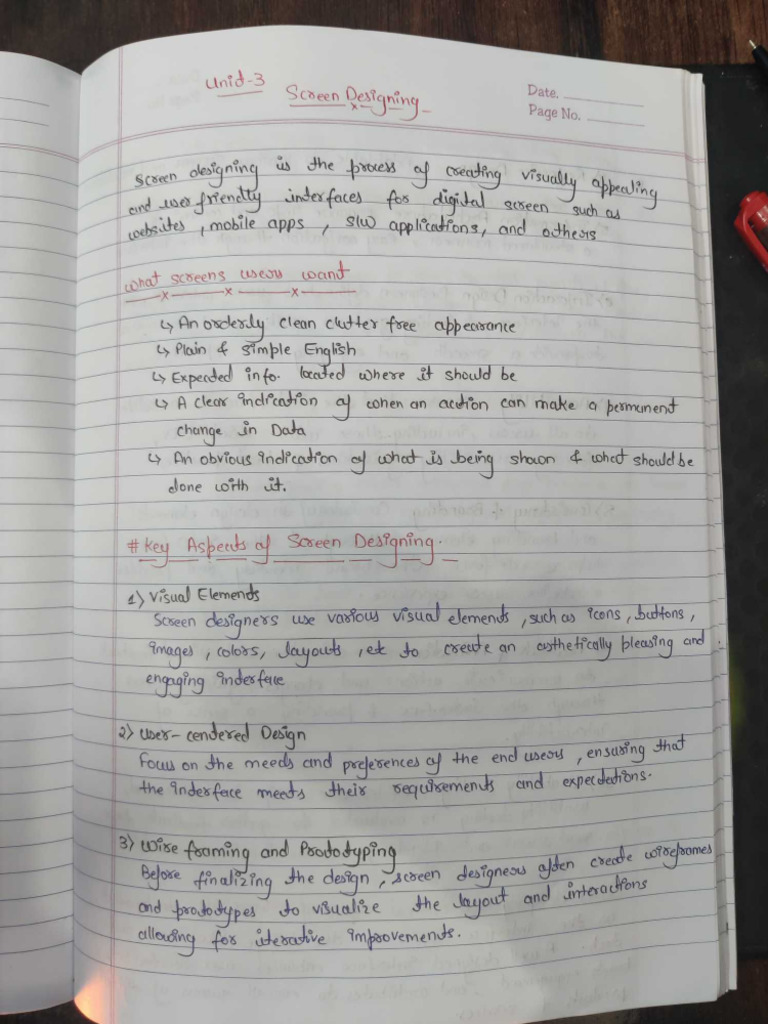 Unit-3
Screen Designing
Date.
Page No.
Screen designing is the process of creating visually appealing
and user friendly interfaces for digital screen such as
websites, mobile apps, S/W applications, and others
What screens users want
↳ An orderly clean clutter free appearance
↳ Plain & simple English
↳ Expected info. located where it should be
↳ A clear indication of when an action can make a permanent
change in Data
↳ An obvious indication of what is being shown & what should be
done with it.
# Key Aspects of Screen Designing.
1) Visual Elements
Screen designers use various visual elements, such as icons, buttons,
images, colors, layouts, etc to create an asthetically pleasing and
engaging interface
2) User-centered Design
Focus on the needs and preferences of the end users, ensuring that
the interface meets their requirements and expectations.
3) Wire framing and Prototyping
Before finalizing the design, screen designers often create wireframes
and prototypes to visualize the layout and interactions
allowing for iterative improvements.